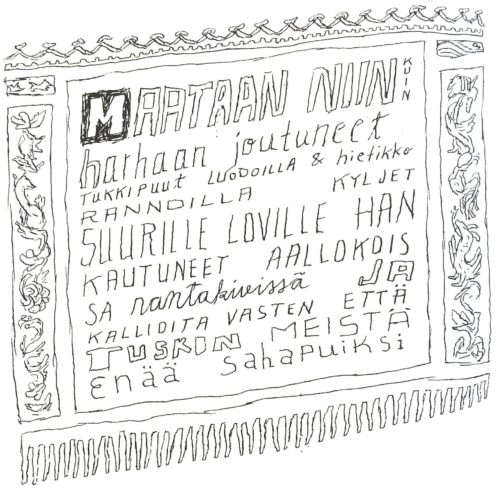 MAATAAN NIIN KUIN
harhaan joutuneet
TUKKIPUUT LUODOILLA & hietikko
RANNOILLA KYLJET
SUURILLE LOVILLE HAN
KAUTUNEET AALLOKOIS
SA rantakivissä JA
KALLIOITA VASTEN ETTÄ
TUSKIN MEISTÄ
Enää Sahapuiksi